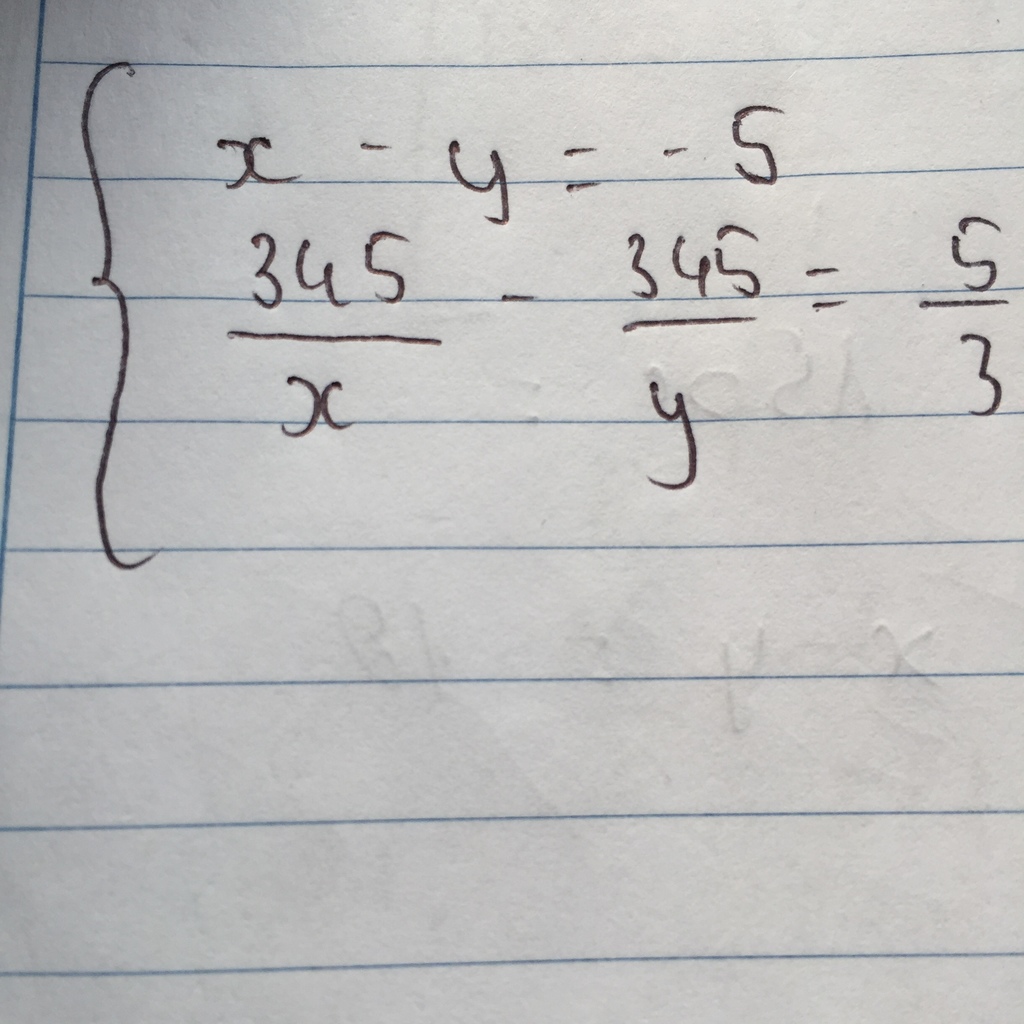 x - y = - 5
345/x - 345/y = 5/3